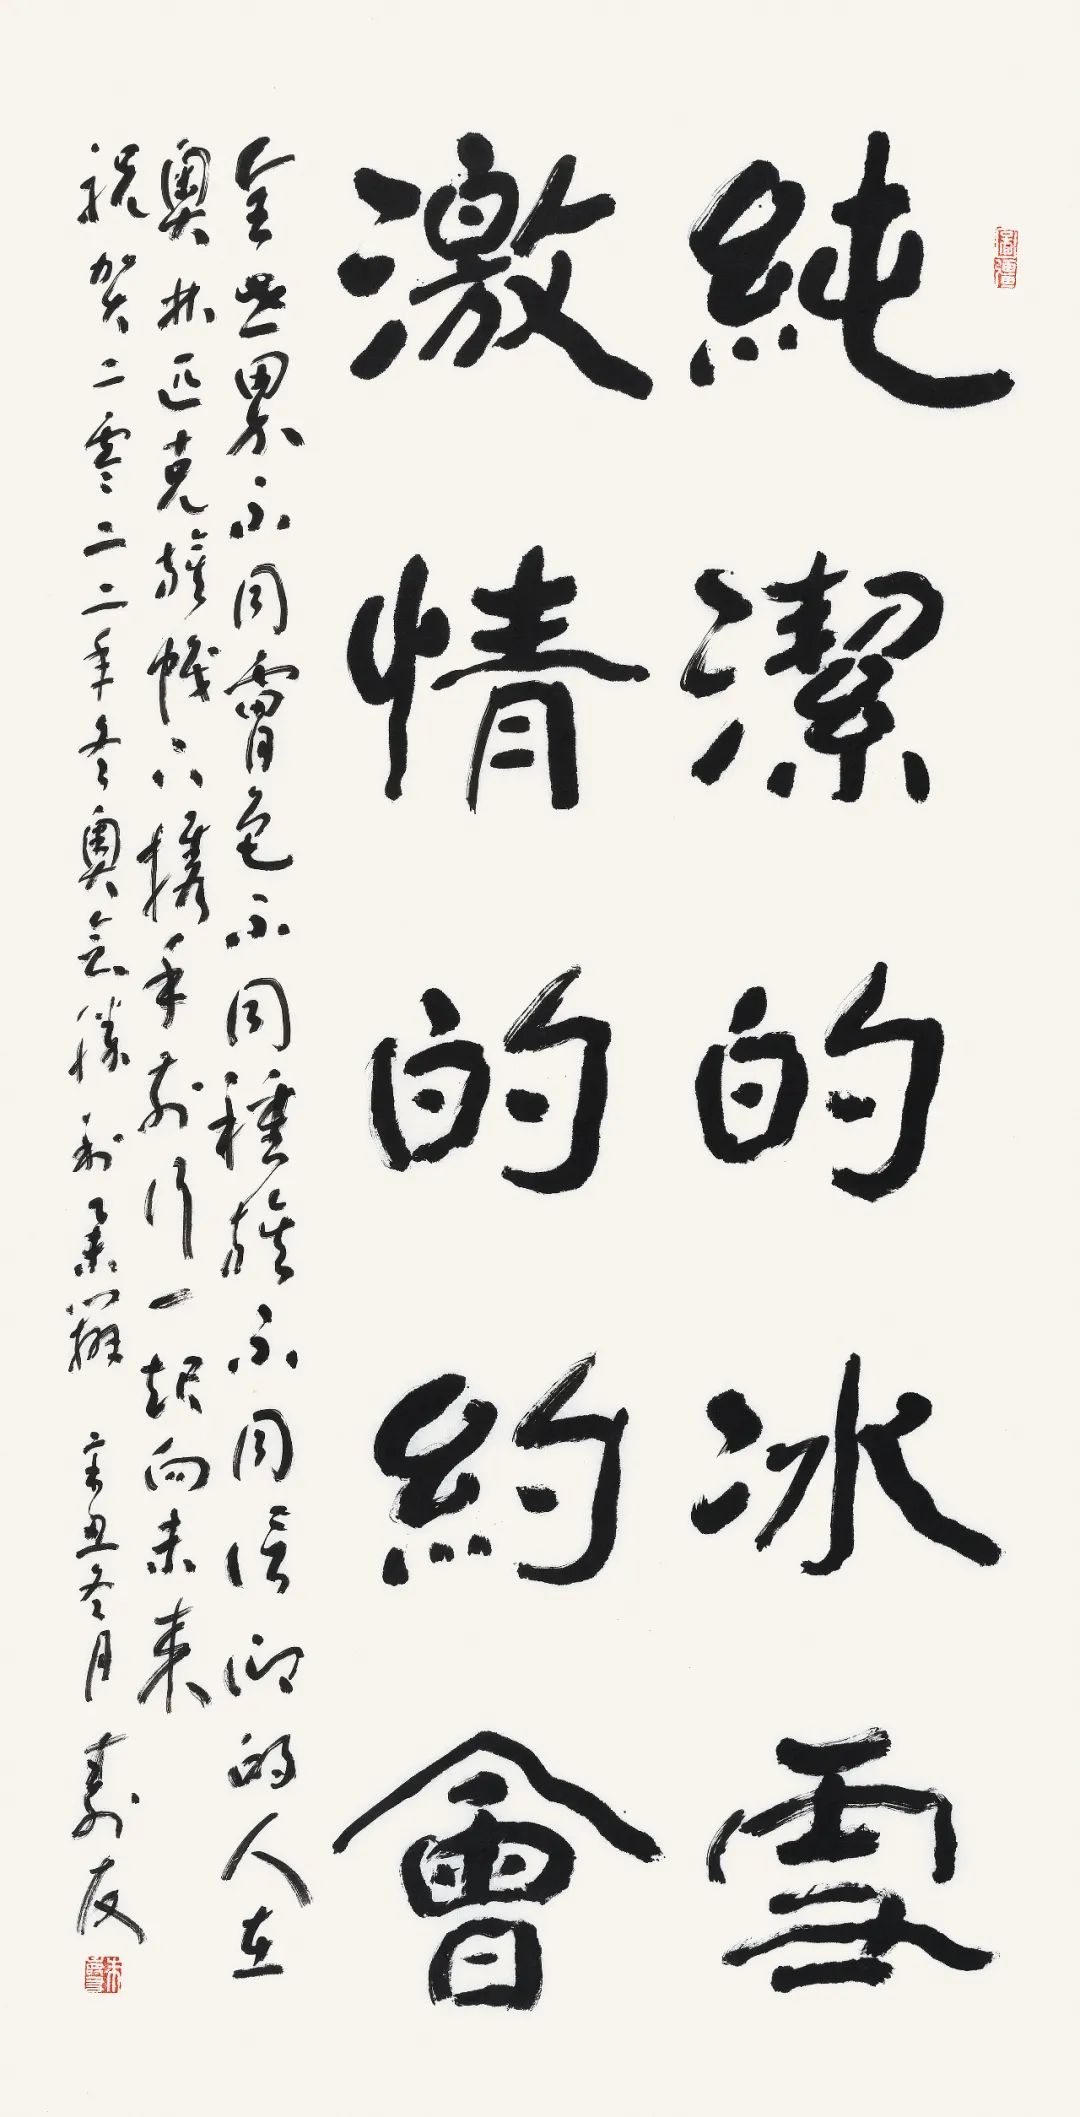 純潔的冰雪
激情的約會
全世界不同膚色不同種族不同信仰的人在
奧林匹克旗幟下攜手前行一起向未来
祝贺二零二二年冬奧会勝利舉辦 辛丑冬月 壽友